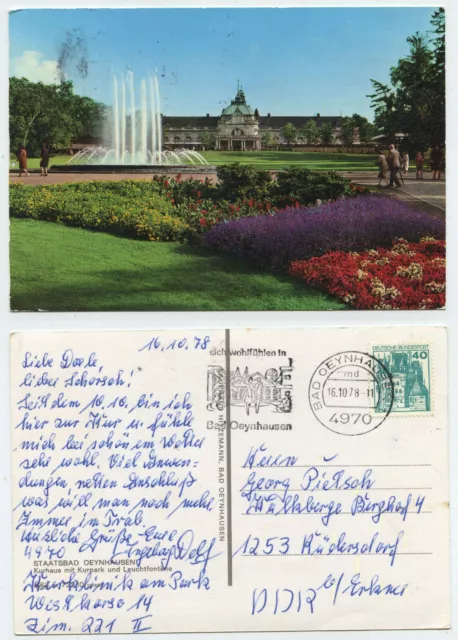 16.10.78
Liebe Dorle
lieber Schorsch!
Seit dem 10.10. bin ich
hier zur Kur u. fühle
mich bei schönem Wetter
sehr wohl. Viel Anwen-
dungen netten Anschluß
was will man noch mehr.
Immer im Trab.
Herzliche Grüße Eure
4970 Ingeborg
STAATSBAD OEYNHAUSEN
Kurhaus mit Kurpark und Leuchtfontäne
Kurklinik am Park
Westkorso 14
Zim. 221 II
HEINEMANN, BAD OEYNHAUSEN
sich wohlfühlen in
Bad Oeynhausen
BAD OEYNHAUSEN
md
16.10.78-11
4970
DEUTSCHE BUNDESPOST
40
Herrn u.
Georg Pietsch
Berghof 4
1253 Rüdersdorf
b/ Erkner
DDR